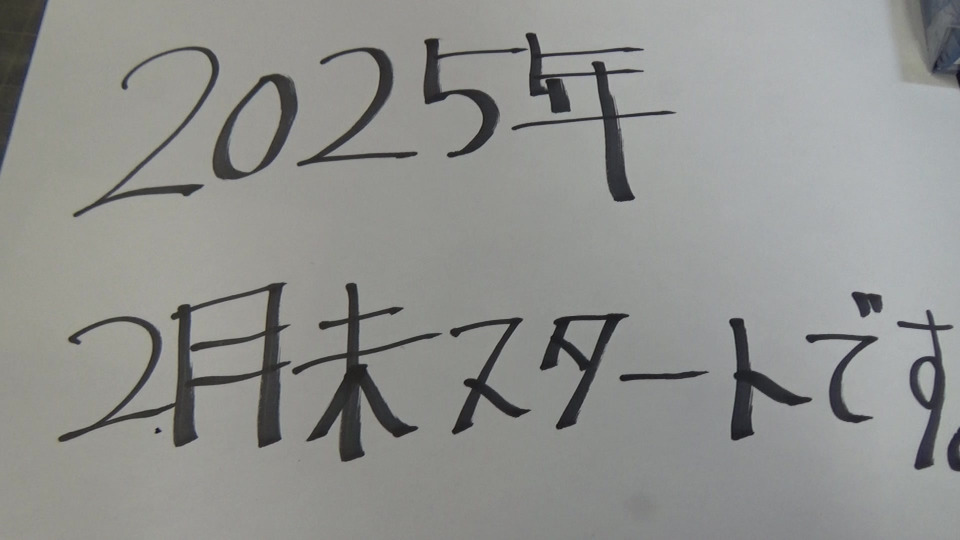 2025年
2月末スタートです。